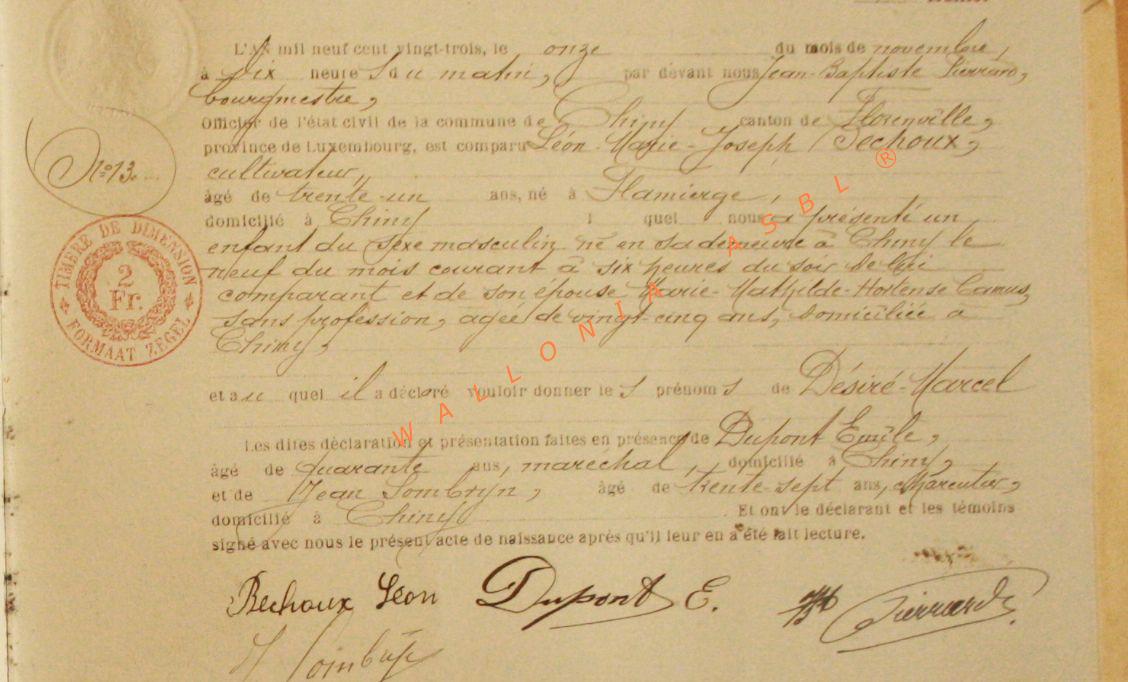 L'An mil neuf cent vingt-trois, le onze du mois de novembre,
à dix heures du matin, par devant nous Jean-Baptiste Pierrard,
bourgmestre,
Officier de l'état civil de la commune de Chiny canton de Florenville,
province de Luxembourg, est comparu Léon-Marie-Joseph Bechoux,
cultivateur,
N° 13.
âgé de trente-un ans, né à Flamierge,
domicilié à Chiny quel nous a présenté un
enfant du sexe masculin né en sa demeure à Chiny le
neuf du mois courant à six heures du soir de lui
comparant et de son épouse Marie-Mathilde-Hortense Camus,
sans profession, agée de vingt-cinq ans, domiciliée à
Chiny,
TIMBRE DE DIMENSION
2
Fr.
FORMAAT ZEGEL
et au quel il a déclaré vouloir donner les prénoms de Désiré-Marcel
Les dites déclaration et présentation faites en présence de Dupont Emile,
âgé de quarante ans, maréchal, domicilié à Chiny,
et de Jean , âgé de trente-sept ans,
domicilié à Chiny Et ont le déclarant et les témoins
signé avec nous le présent acte de naissance après qu'il leur en a été fait lecture.
Bechoux Léon Dupont E. Pierrard
WALLONIA ASBL ®